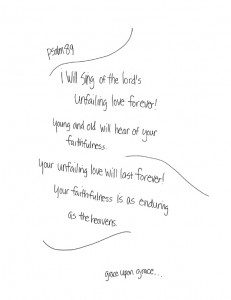 psalm 89
I Will Sing of the lord's
unfailing love forever!
young and old will hear of your
faithfulness.
Your unfailing love will last forever!
Your faithfulness is as enduring
as the heavens.
grace upon grace...